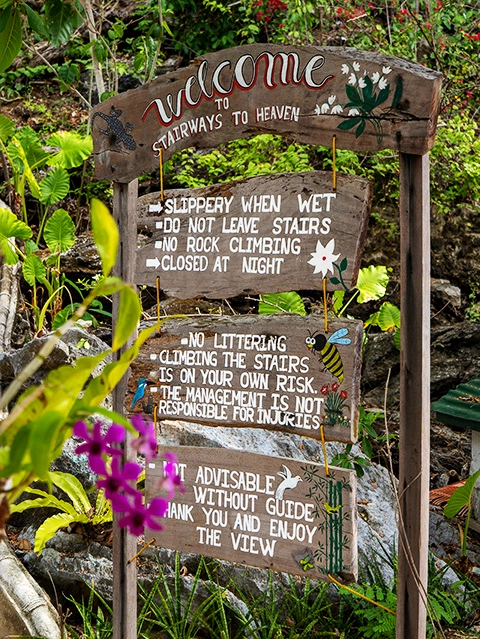 welcome
TO
STAIRWAYS TO HEAVEN
SLIPPERY WHEN WET
DO NOT LEAVE STAIRS
NO ROCK CLIMBING
CLOSED AT NIGHT
NO LITTERING
CLIMBING THE STAIRS
IS ON YOUR OWN RISK.
THE MANAGEMENT IS NOT
RESPONSIBLE FOR INJURIES
NOT ADVISABLE
WITHOUT GUIDE
THANK YOU AND ENJOY
THE VIEW